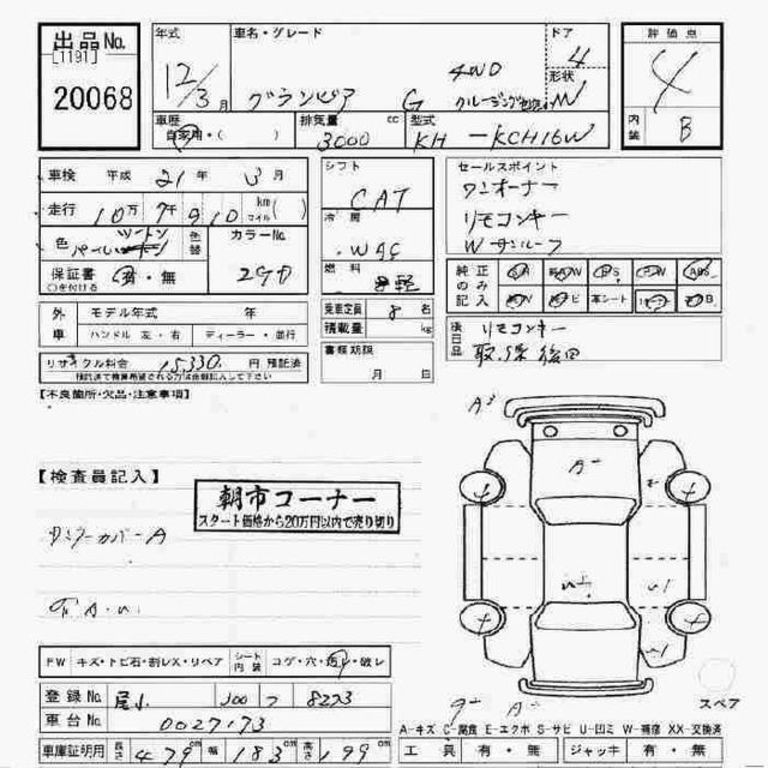 出品No.
[1191]
20068
年式
12/3月
車名・グレード
グランビア G 4WD
クルージング
ドア
4
形状
W
評価点
4
内装 B
車歴
自家用・( )
排気量
3000 cc
型式
KH-KCH16W
車検 平成 21年 3月
走行 10万7千910 km マイル( )
色
ツートン
パール
色替
カラーNo.
290
保証書 有・無
○を付ける
シフト
CAT
冷房
WAC
燃料
軽
乗車定員 8名
積載量 kg
書類期限
月 日
セールスポイント
ワンオーナー
リモコンキー
Wサンルーフ
純正のみ記入
革シート
後日品
リモコンキー
取、保後日
外車
モデル年式 年
ハンドル 左・右
ディーラー・並行
リサイクル料金 15,330 円 預託済
預託済で精算希望される方は金額記入して下さい
【不良箇所・欠品・注意事項】
【検査員記入】
朝市コーナー
スタート価格から20万円以内で売り切り
カバーA
A³
A-
A-
スペア
FW キズ・トビ石・割レX・リペア
シート内装 コゲ・穴・汚レ・破レ
登録No. 尾小 300 フ 8273
車台No. 0027173
車庫証明用 長さ 479cm 幅 183cm 高さ 199cm
A-キズ C-腐食 E-エクボ S-サビ U-凹ミ W-補修 XX-交換済
工具 有・無
ジャッキ 有・無